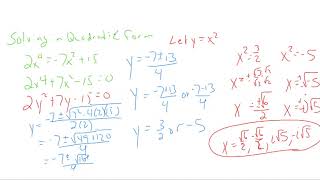 Solving a Quadratic Form
Let y = x²
2x⁴ = -7x² + 15
2x⁴ + 7x² - 15 = 0
2y² + 7y - 15 = 0
y = (-7 ± √(7² - 4(2)(15))) / 2(2)
= (-7 ± √(49 + 120)) / 4
= -7 ±
y = (-7 ± 13) / 4
y = (-7 + 13) / 4 or (-7 - 13) / 4
y = 3/2 or -5
x² = 3/2
x² = -5
x = ± √6 / 2
x = ± i√5